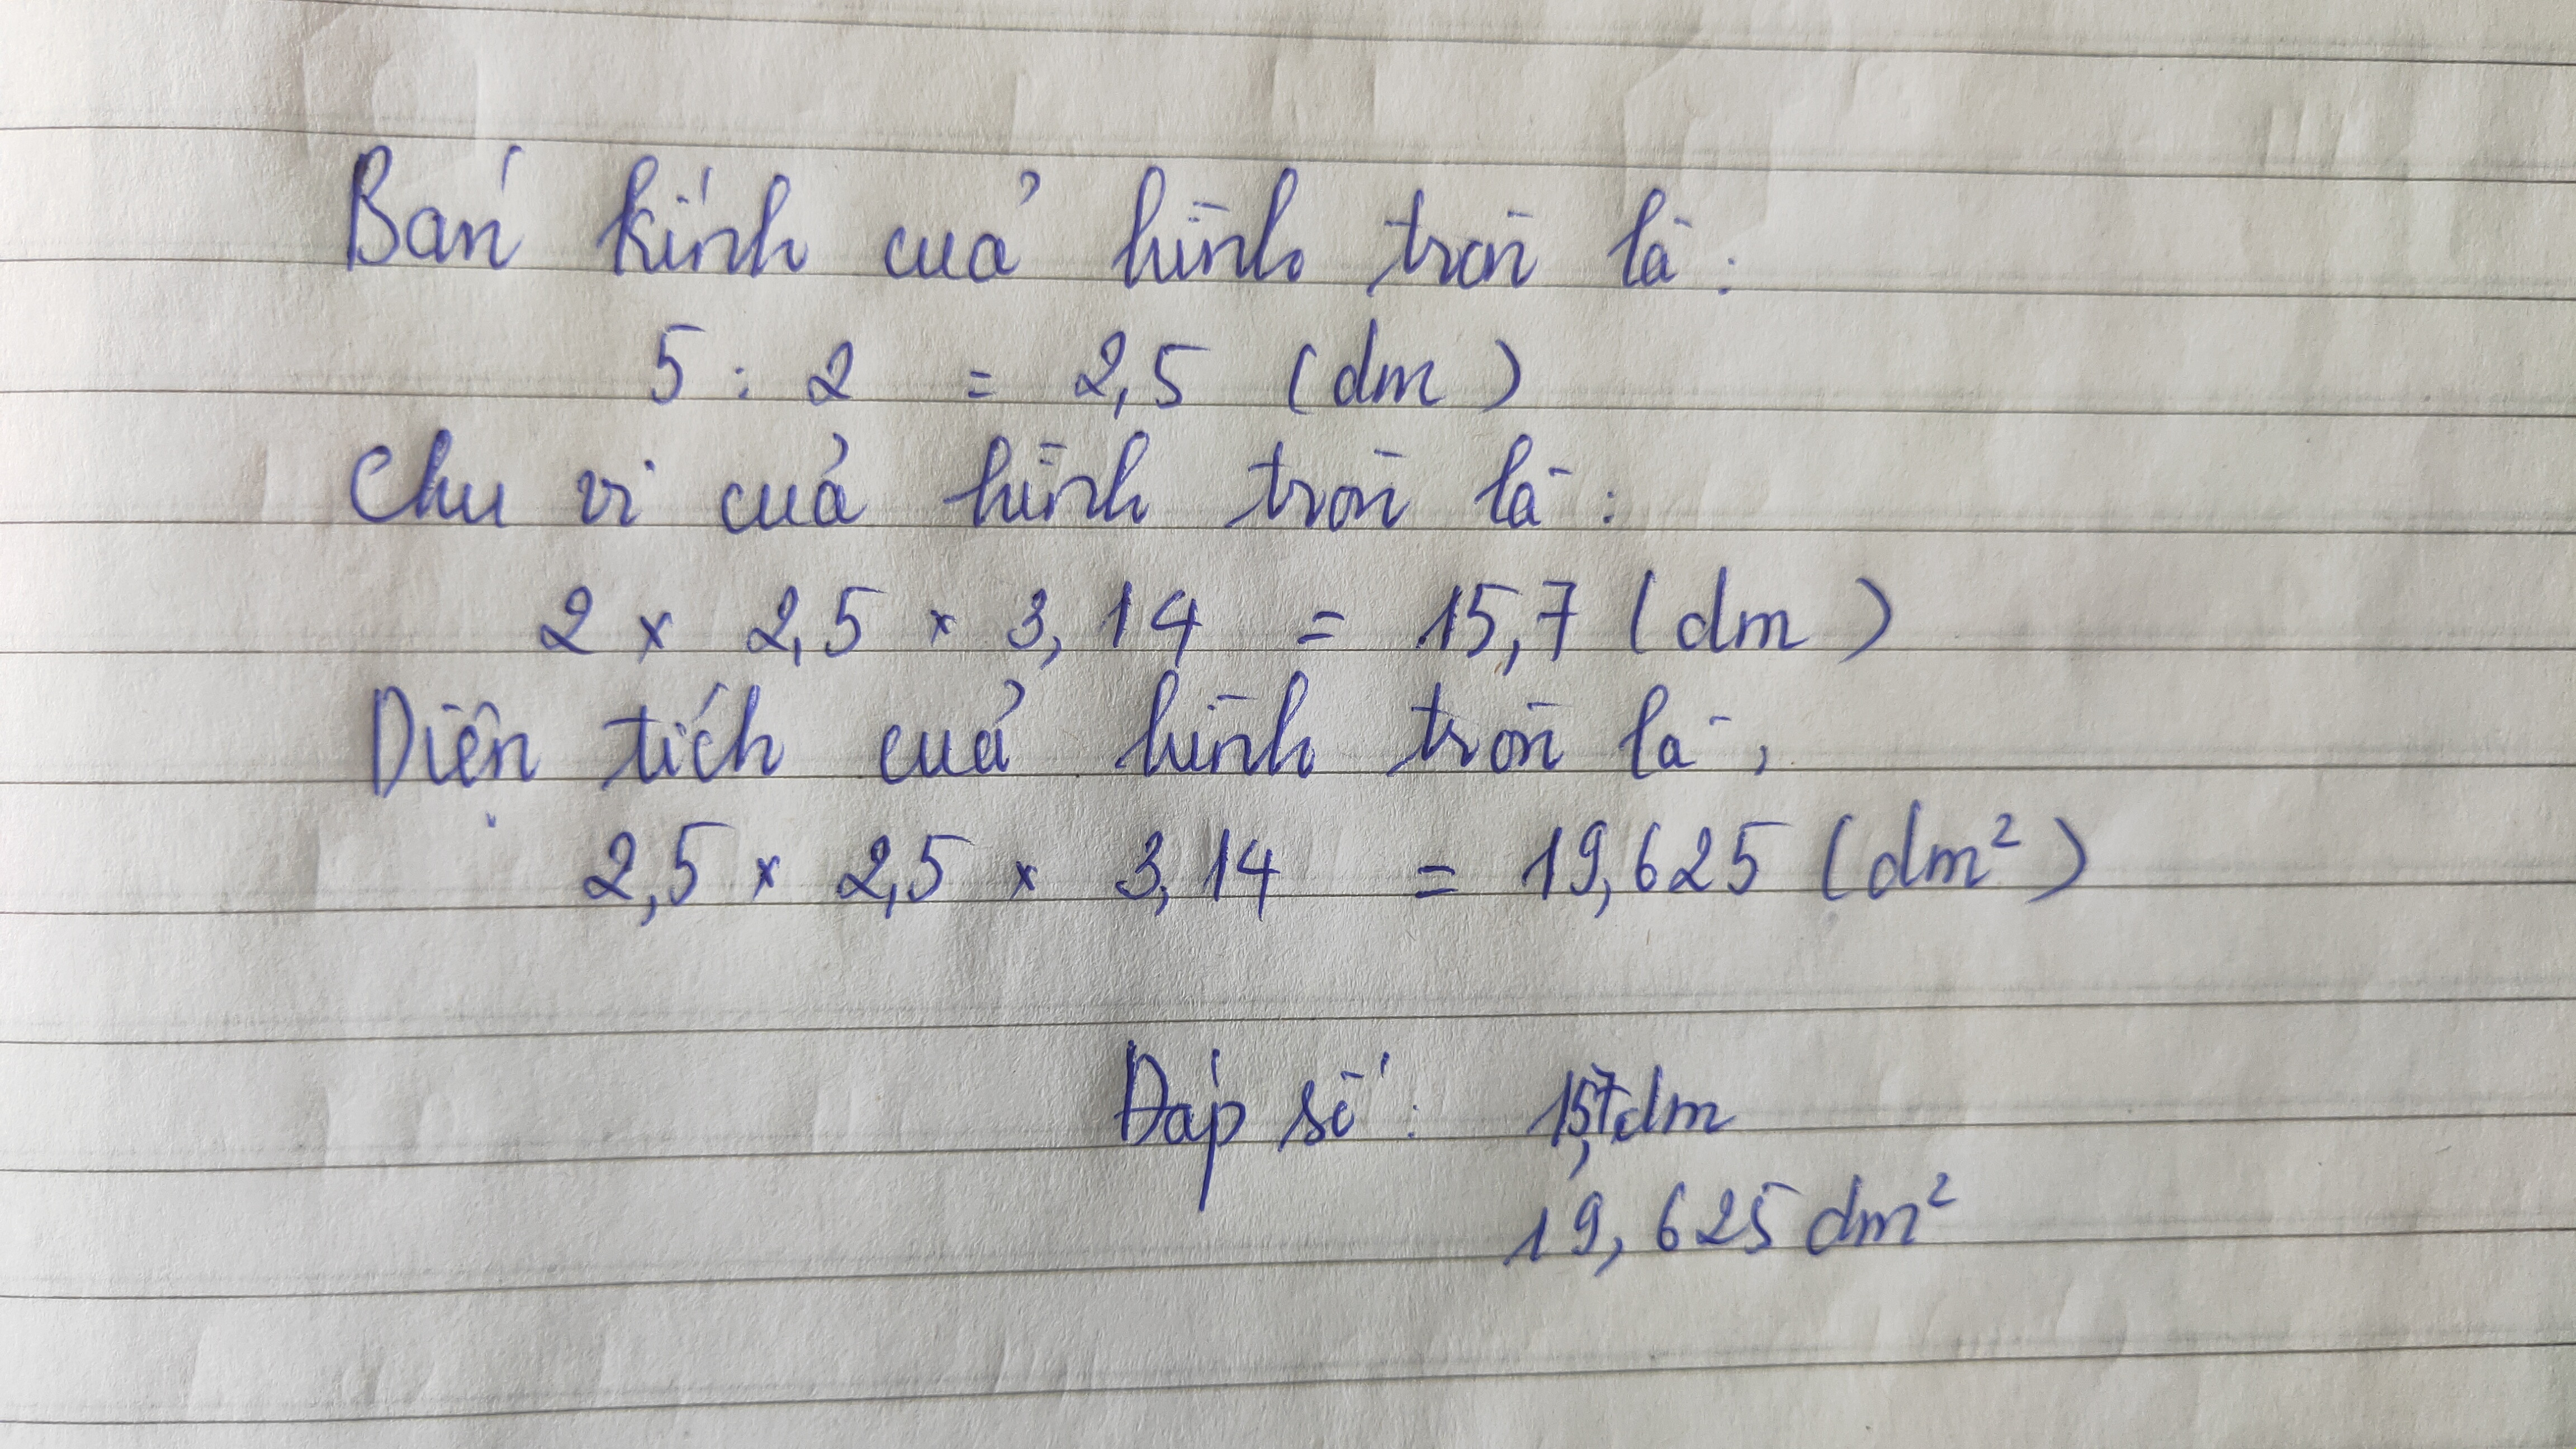 Bán kính của hình tròn là :
5 : 2 = 2,5 (dm)
Chu vi của hình tròn là :
2 x 2,5 x 3,14 = 15,7 (dm)
Diện tích của hình tròn là ;
2,5 x 2,5 x 3,14 = 19,625 (dm²)
Đáp số : 15,7dm
19,625 dm²